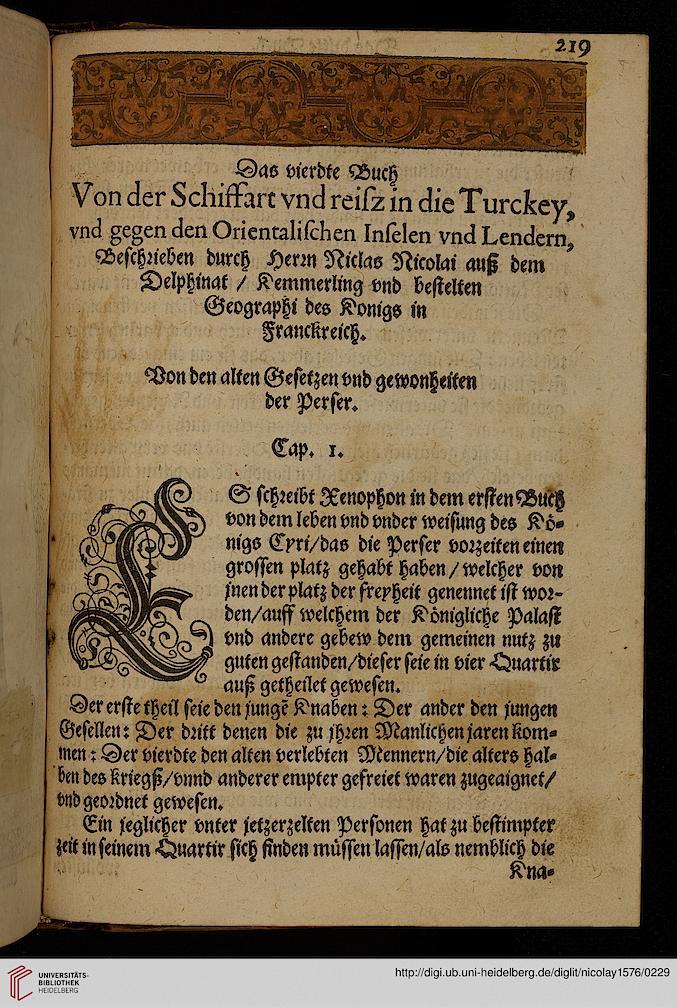 219
Das vierdte Buch
Von der Schiffart vnd reisz in die Turckey,
vnd gegen den Orientalischen Inselen vnd Lendern,
Beschrieben durch Herrn Niclas Nicolai auß dem
Delphinat / Kemmerling vnd bestelten
Geographi des Konigs in
Franckreich.
Von den alten Gesetzen vnd gewonheiten
der Perser.
Cap. 1.
ES schreibt Xenophon in dem ersten Buch
von dem leben vnd vnder weisung des Kö-
nigs Cyri/das die Perser vorzeiten einen
grossen platz gehabt haben / welcher von
jnen der platz der freyheit genennet ist wor-
den/auff welchem der Königliche Palast
vnd andere gebew dem gemeinen nutz zu
guten gestanden/dieser seie in vier Quartir
auß getheilet gewesen.
Der erste theil seie den jungē Knaben : Der ander den jungen
Gesellen: Der dritt denen die zu jhren Manlichen jaren kom-
men : Der vierdte den alten verlebten Mennern/die alters hal-
ben des kriegß/vnnd anderer empter gefreiet waren zugeaignet/
vnd geordnet gewesen.
Ein jeglicher vnter jetzerzelten Personen hat zu bestimpter
zeit in seinem Quartir sich finden müssen lassen/als nemblich die
Kna-
UNIVERSITÄTS-
BIBLIOTHEK
HEIDELBERG
http://digi.ub.uni-heidelberg.de/diglit/nicolay1576/0229